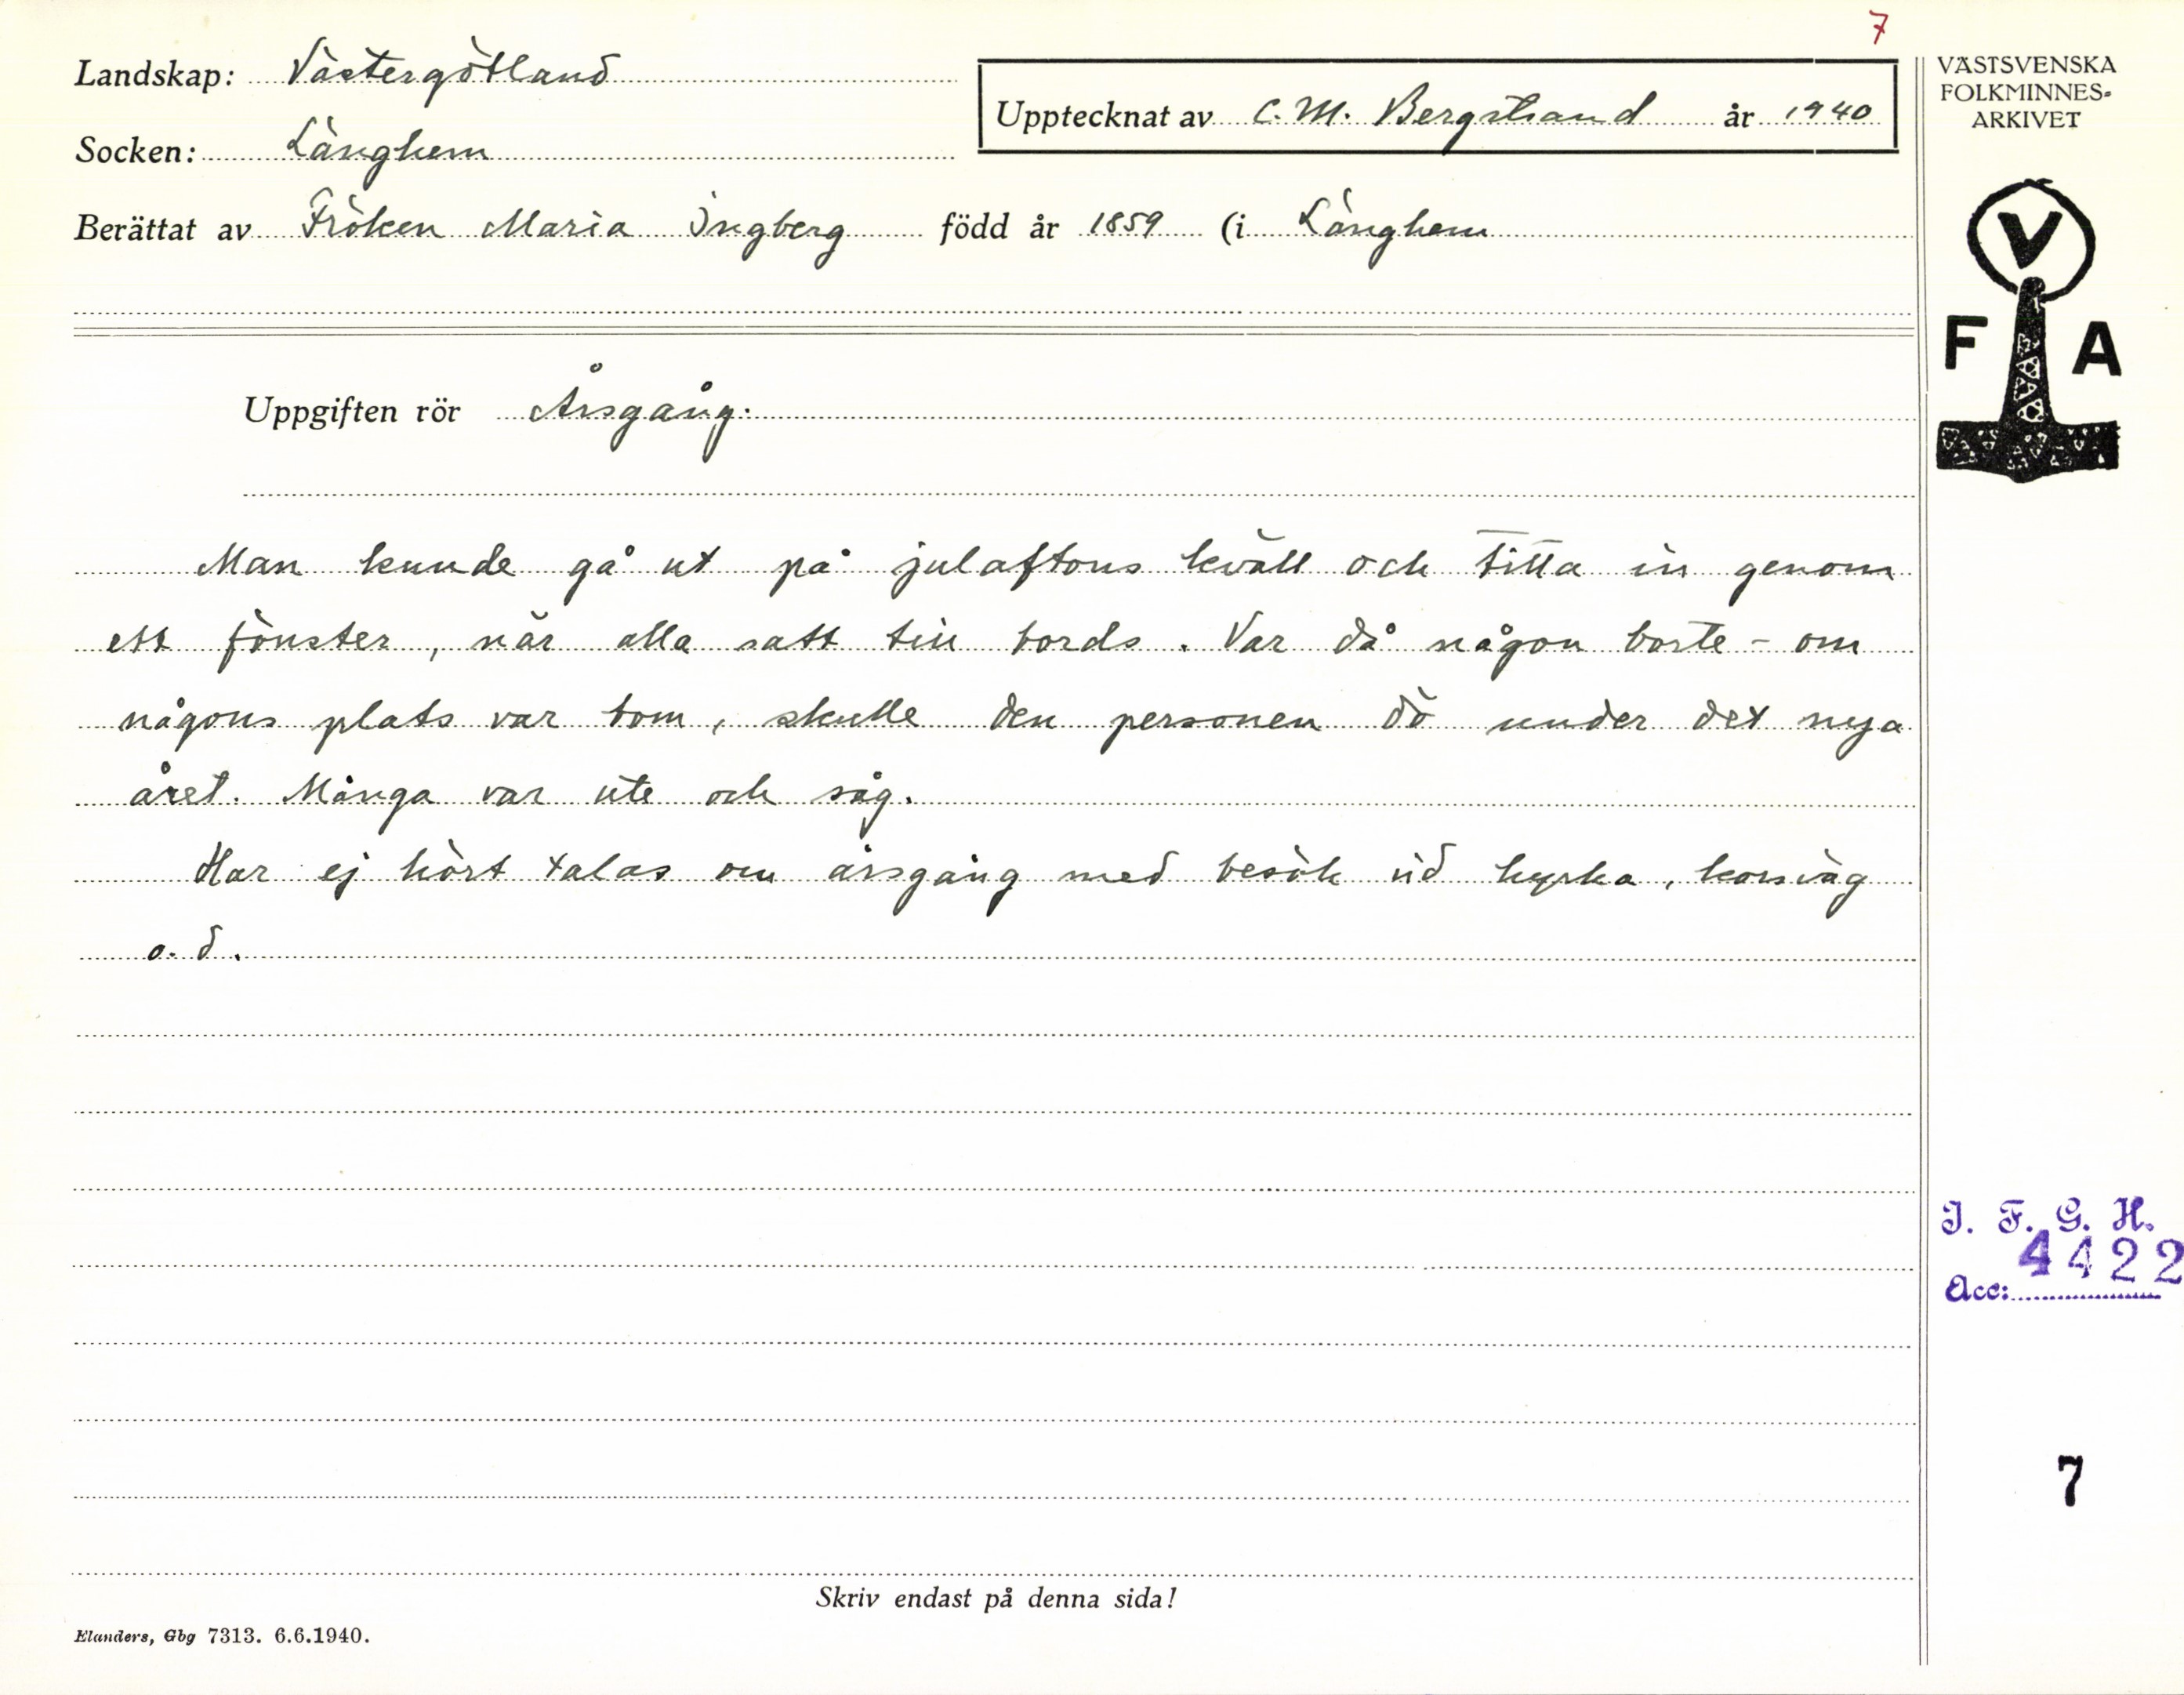 7
Landskap: Västergötland
Upptecknat av C. M. Bergstrand år 1940
Socken: Länghem
Berättat av Fröken Maria Ingberg född år 1859 (i Länghem
VÄSTSVENSKA
FOLKMINNES-
ARKIVET
V
F A
Uppgiften rör Årsgång.
Man kunde gå ut på julaftons kväll och titta in genom
ett fönster, när alla satt till bords. Var då någon borte - om
någons plats var tom, skulle den personen dö under det nya
året. Många var ute och såg.
Har ej hört talas om årsgång med besök vid kyrka, korsväg
o. d.
I. F. G. H.
4422
Acc:
7
Skriv endast på denna sida!
Elanders, Gbg 7313. 6.6.1940.